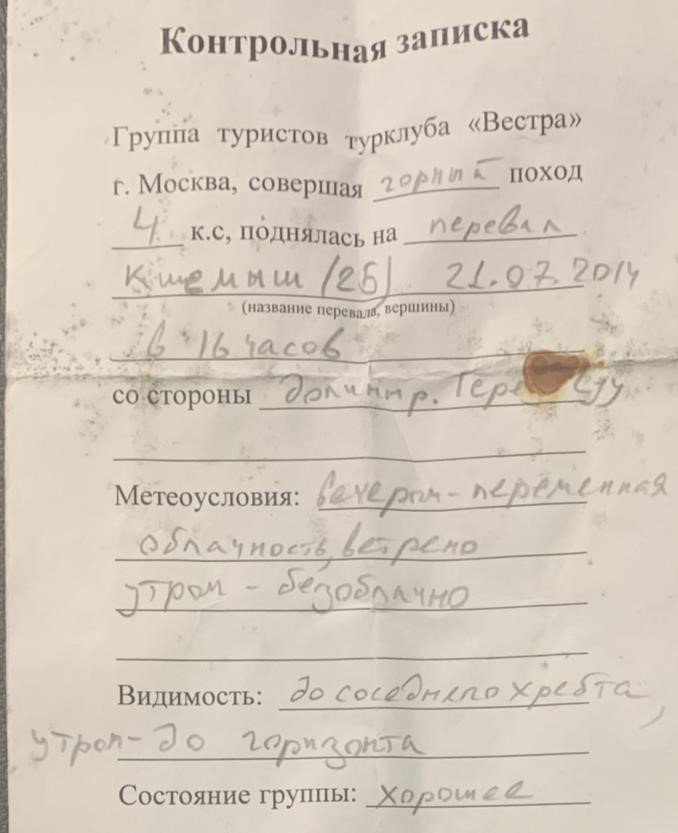 Контрольная записка
Группа туристов турклуба «Вестра»
г. Москва, совершая горный поход
4 к.с, поднялась на перевал
Кшемыш (2Б) 21.07.2014
(название перевала, вершины)
в 16 часов
со стороны долины р.
Метеоусловия: вечером - переменная
облачность, ветрено
утром - безоблачно
Видимость: до соседнего хребта,
утром - до горизонта
Состояние группы: хорошее